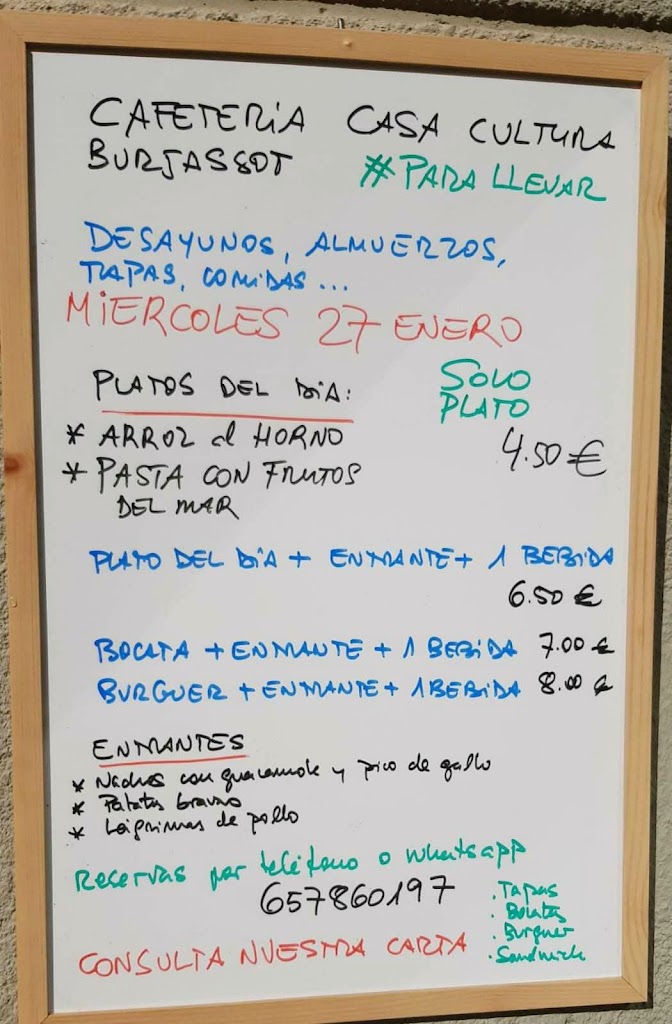 CAFETERIA CASA CULTURA
BURJASSOT #PARA LLEVAR
DESAYUNOS, ALMUERZOS,
TAPAS, COMIDAS ...
MIERCOLES 27 ENERO
PLATOS DEL DIA:
SOLO
PLATO
* ARROZ al HORNO
4.50 €
* PASTA CON FRUTOS
DEL MAR
PLATO DEL DIA + ENTRANTE + 1 BEBIDA
6.50 €
BOCATA + ENTRANTE + 1 BEBIDA 7.00 €
BURGUER + ENTRANTE + 1 BEBIDA 8.00 €
ENTRANTES
* Nachos con guacamole y pico de gallo
* Patatas bravas
* Lágrimas de pollo
Reservas por teléfono o whatsapp
657860197
. Tapas
. Bocatas
. Burguer
. Sandwich
CONSULTA NUESTRA CARTA